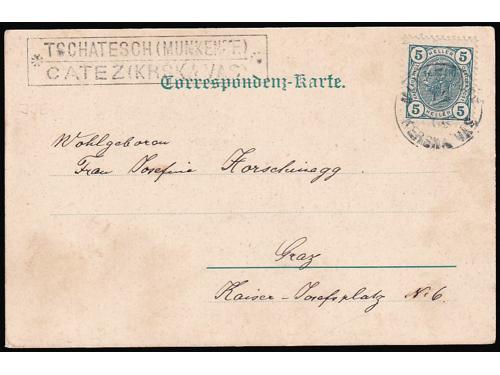 * TSCHATESCH (MUNKENDF.) *
CATEZ (KRSKA VAS)
Correspondenz-Karte.
5 HELLER 5
5 HELLER 5
KERSKA VAS
Wohlgeboren
Frau Josefine Horschinegg
Graz
Kaiser-Josefsplatz № 6.